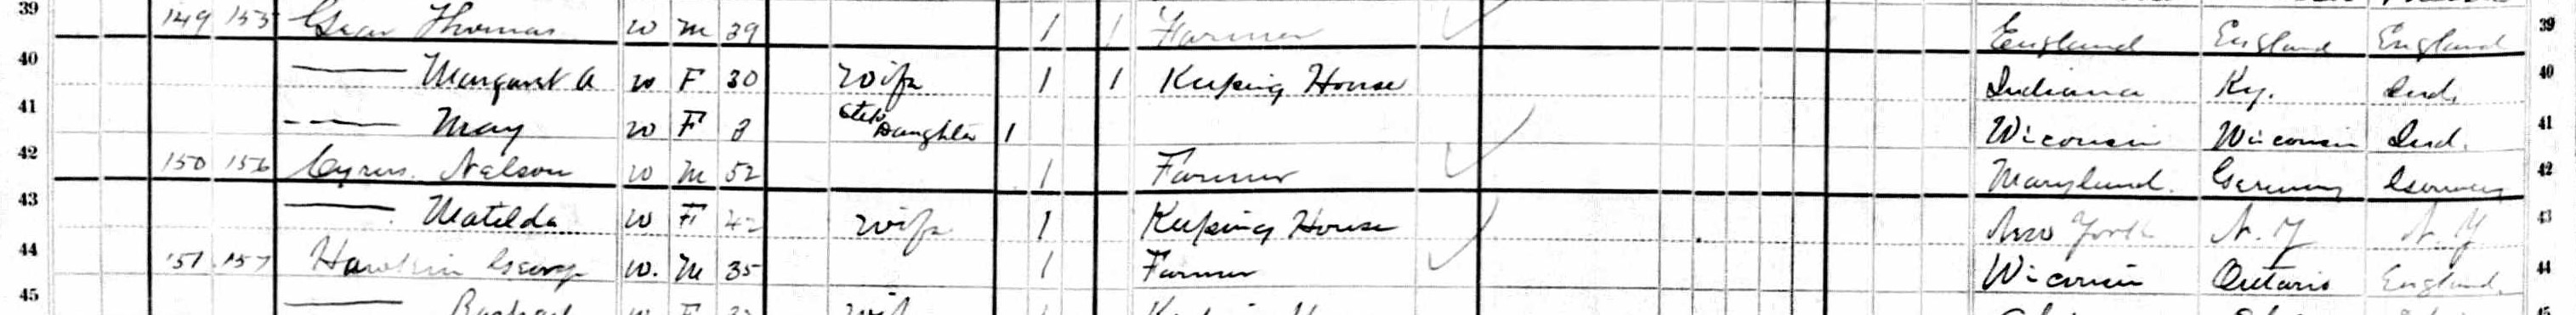 39 149 155 Thomas W M 39 1 1 Farmer England England England 39
40 —— Margaret A W F 30 Wife 1 1 Keeping House Indiana Ky. Ind. 40
41 —— May W F 8 Step Daughter 1 Wiconsin Wiconsin Ind. 41
42 150 156 Cyrus Nelson W M 52 1 Farmer Maryland Germany Germany 42
43 —— Matilda W F 42 Wife 1 Keeping House New York N. Y N. Y 43
44 151 157 George W. M 35 1 Farmer Wiconsin Ontario England 44
45 —— W F Wife